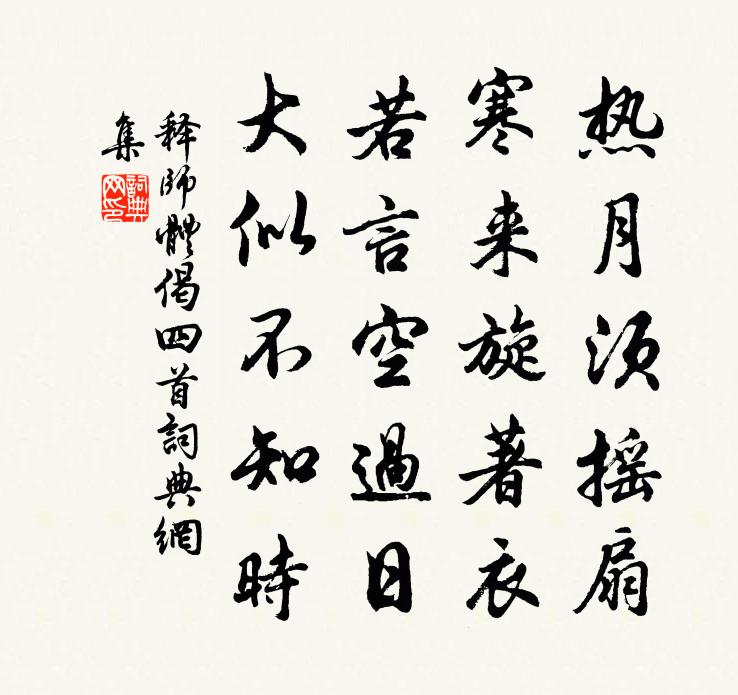 热月须摇扇
寒来旋著衣
若言空過日
大似不知時
释師體偈四首詞典網
集
詞典
网印